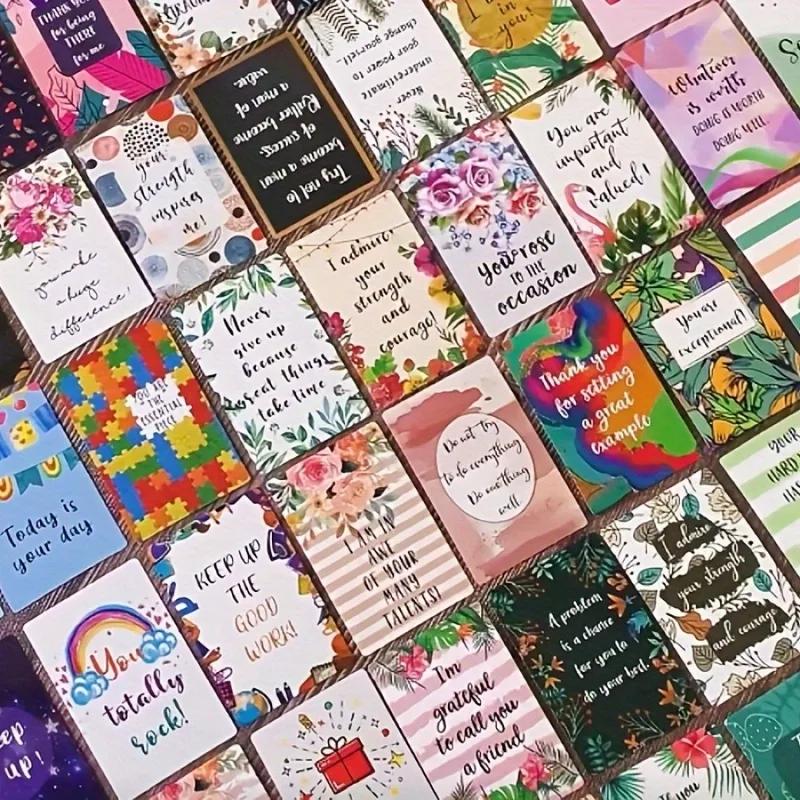 THANK YOU
for being
THERE
for me
in you!
Whatever
is worth
DOING IS WORTH
DOING WELL.
your
strength
inspires
me!
Try not to
become a man
of success.
Rather become
a man of
value.
Never
underestimate
your power to
change yourself
You are
important
and
valued!
you make
a huge
difference!
Never
give up
because
great things
take time
I admire
your
strength
and
courage!
You rose
TO THE
occasion
You are
exceptional!
YOU ARE
THE
ESSENTIAL
PIECE
Do not try
to do everything
Do one thing
well
Thank you
for setting
a great
example
YOUR
HARD
Today is
your day
KEEP UP
THE
GOOD
WORK!
I AM IN
AWE
OF YOUR
MANY
TALENTS!
I admire
your strength
and courage
You
totally
rock!
I'm
grateful
to call you
a friend
A problem
is a chance
for you to
do your best.
up!